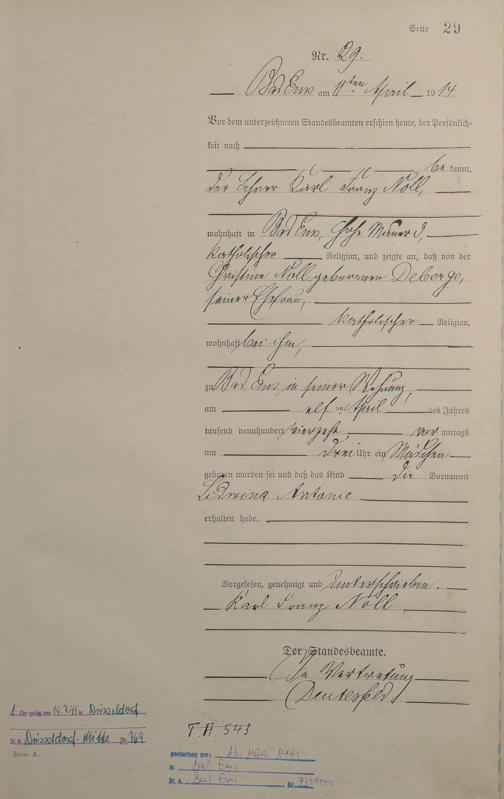 Seite 29
Nr. 29.
Bad Ems am 11ten April 1914.
Vor dem unterzeichneten Standesbeamten erschien heute, der Persönlich-
keit nach
be kannt,
der Lehrer Karl Franz Noll,
wohnhaft in Bad Ems, Hohe Mauer 3,
katholischer Religion, und zeigte an, daß von der
Christine Noll gebornen Deberge,
seiner Ehefrau,
katholischer Religion,
wohnhaft bei ihm,
zu Bad Ems in seiner Wohnung,
am elf ten April des Jahres
tausend neunhundert vierzehn vor mittags
um drei Uhr ein Mädchen
geboren worden sei und daß das Kind die Vornamen
Lidwina Antonie
erhalten habe.
Vorgelesen, genehmigt und unterschrieben.
Karl Franz Noll
Der Standesbeamte.
In Vertretung
1. Ehe geschl. am 19.7.41 in Düsseldorf
St. A. Düsseldorf-Mitte Nr. 769
Form A.
T.A. 543
gestorben am: 23. März 1999
in Bad Ems
St. A. Bad Ems Nr.